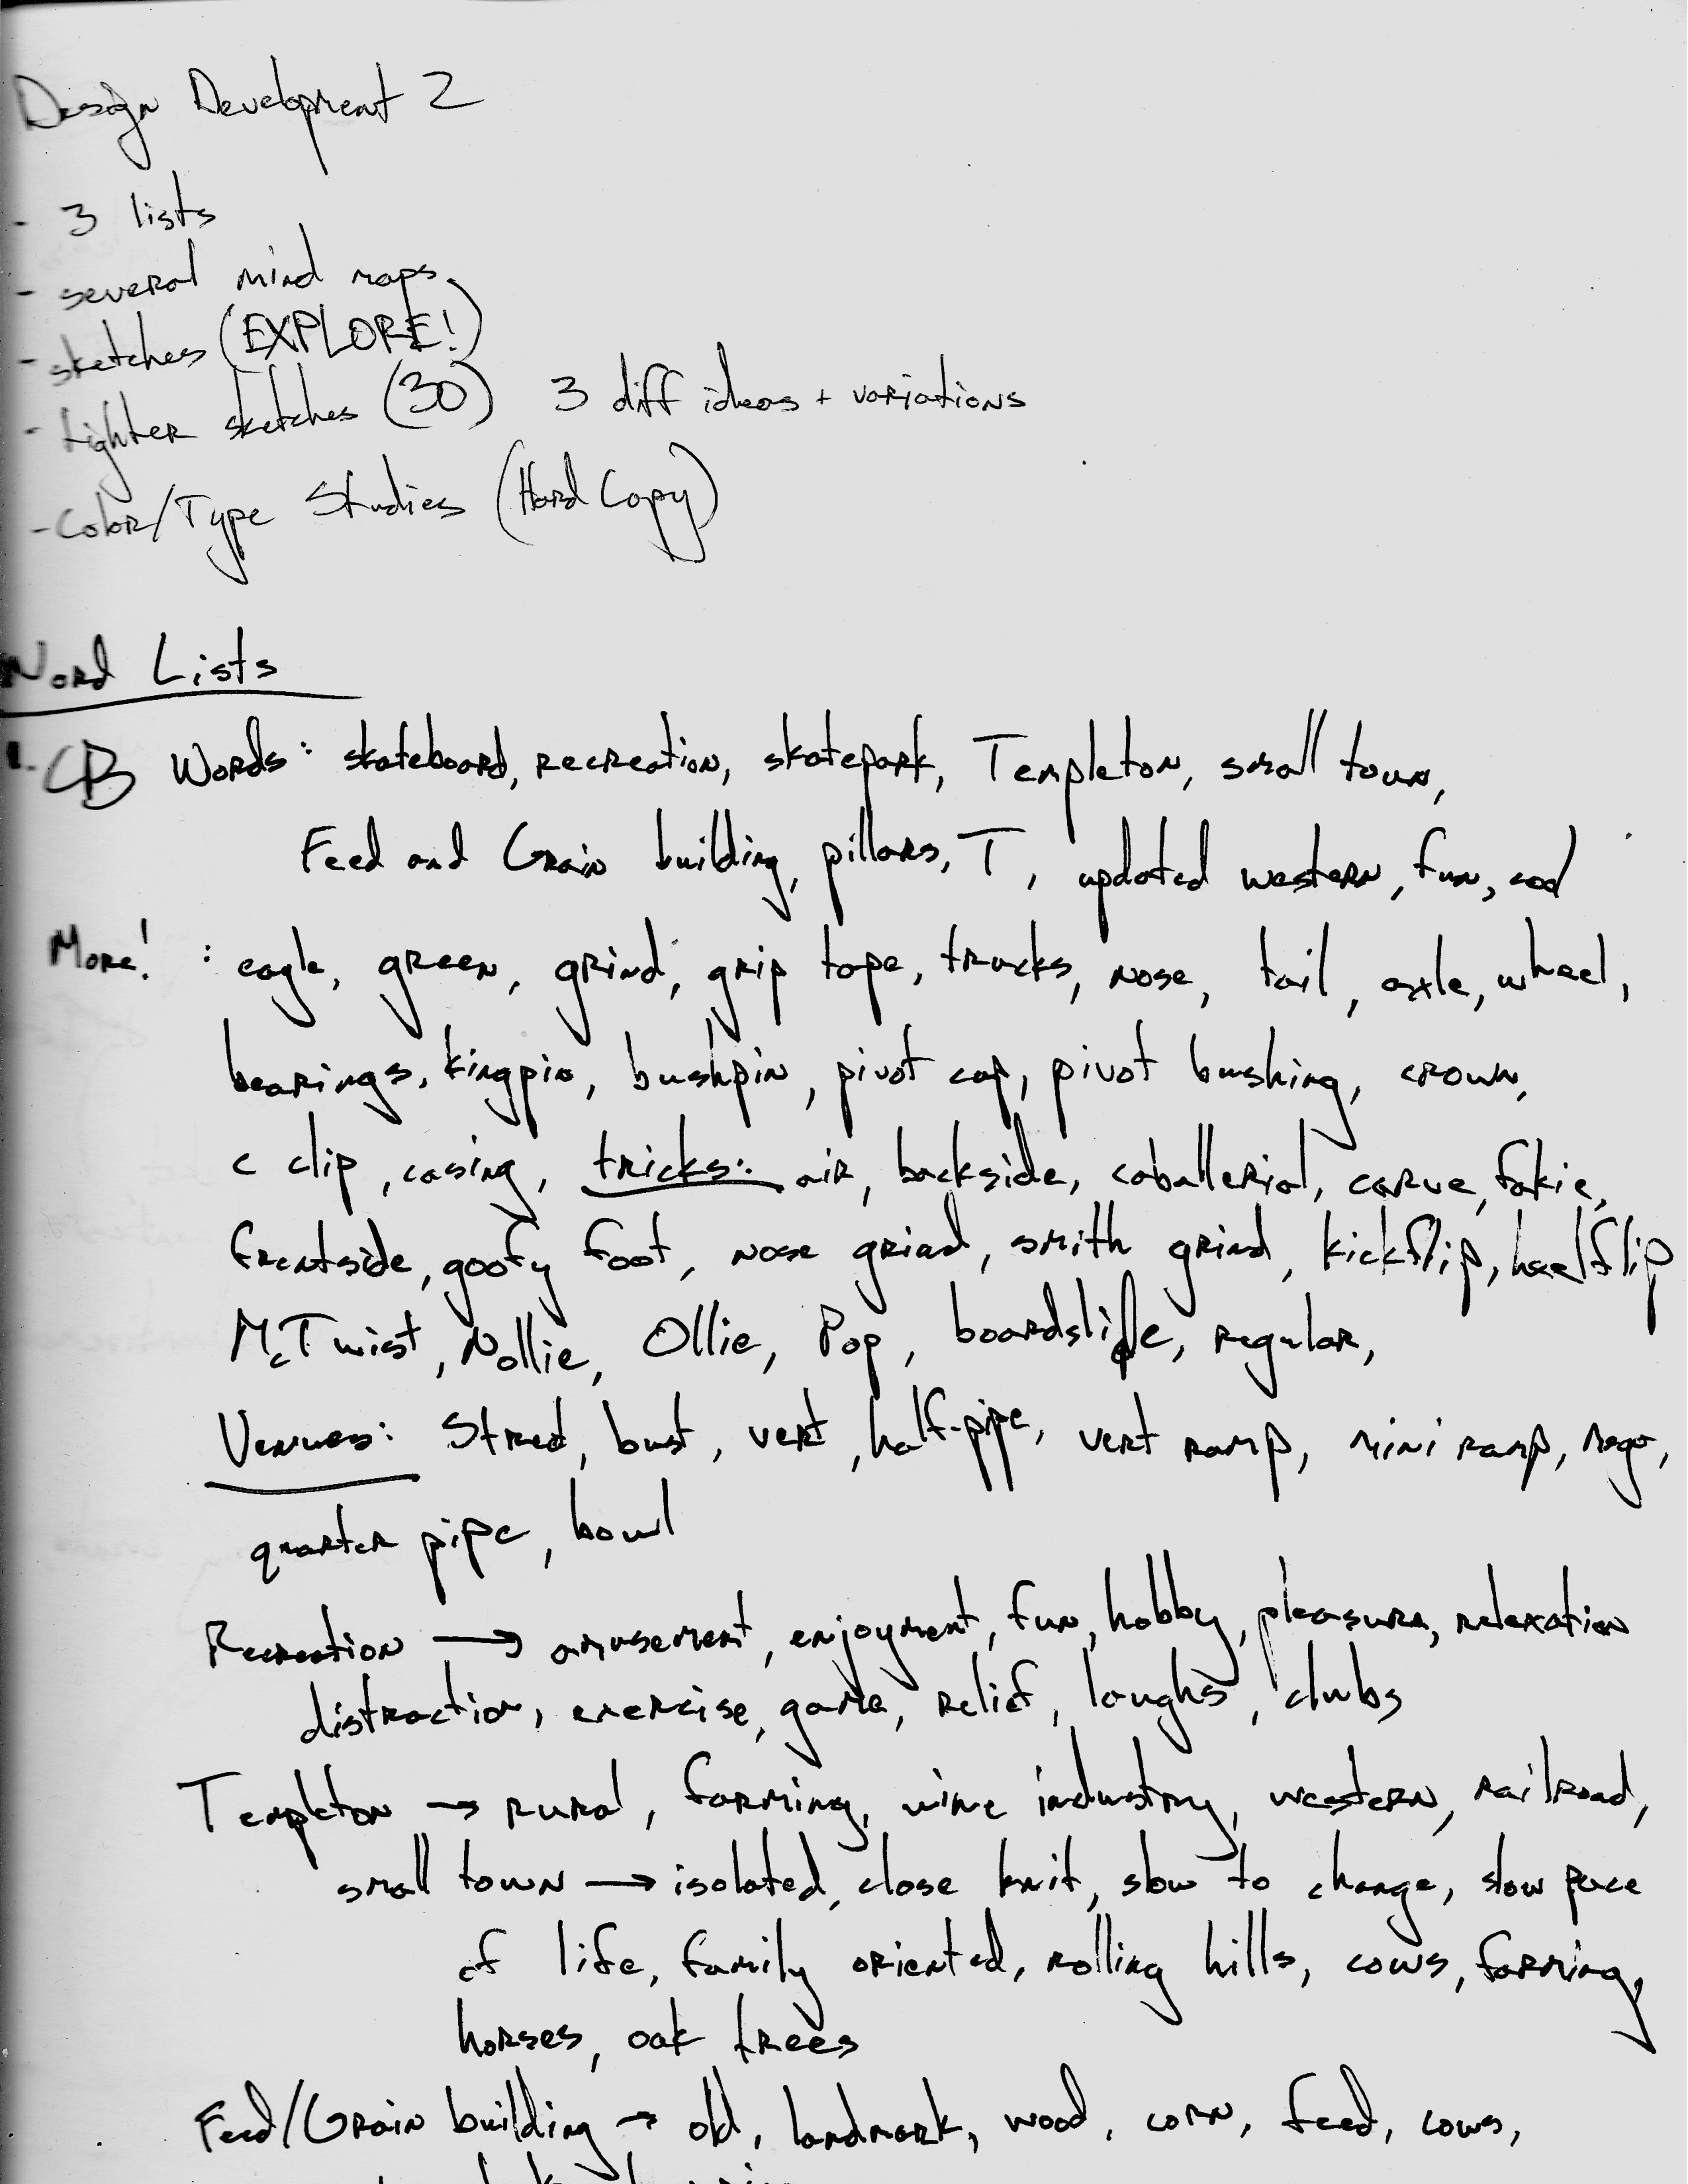 Design Development 2
- 3 lists
- several mind maps
- sketches (EXPLORE!)
- tighter sketches (30) 3 diff ideas + variations
- Color/Type Studies (Hard Copy)
Word Lists
1. CB Words: skateboard, recreation, skatepark, Templeton, small town,
Feed and Grain building, pillars, T, updated western, fun, cool
More! : eagle, green, grind, grip tape, trucks, nose, tail, axle, wheel,
bearings, kingpin, bushpin, pivot cap, pivot bushing, crown,
c clip, casing, tricks: air, backside, caballerial, carve, fakie,
frontside, goofy foot, nose grind, smith grind, kickflip, heelflip
McTwist, Nollie, Ollie, Pop, boardslide, regular,
Venues: Street, bust, vert, half-pipe, vert ramp, mini ramp,
quarter pipe, bowl
Recreation → amusement, enjoyment, fun, hobby, pleasure, relaxation
distraction, exercise, game, relief, laughs, clubs
Templeton → rural, farming, wine industry, western, railroad,
small town → isolated, close knit, slow to change, slow pace
of life, family oriented, rolling hills, cows, farming,
horses, oak trees
Feed/Grain building → old, landmark, wood, corn, feed, cows,